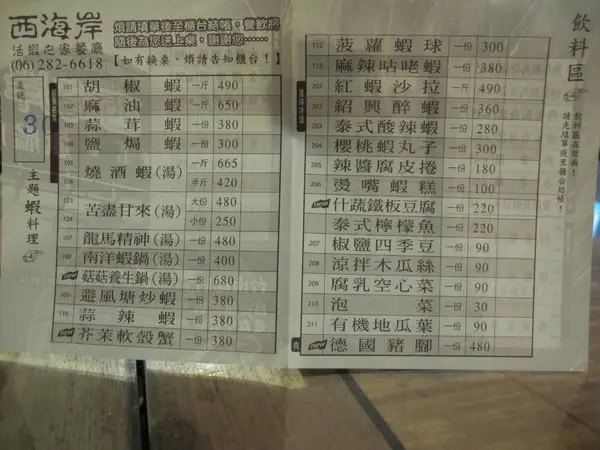 西海岸
活蝦之家餐廳
(06)282-6618
煩請填單後至櫃台結帳，餐飲將
隨後為您送上桌，謝謝您……
【如有換桌，煩請告知櫃台！】
桌號
3
主題蝦料理
101 胡椒蝦 一斤 490
102 麻油蝦 一斤 650
103 蒜茸蝦 一份 380
104 鹽焗蝦 一份 300
105 燒酒蝦(湯) 一斤 665
106 半斤 420
123 苦盡甘來(湯) 大份 480
124 小份 250
107 龍馬精神(湯) 一份 480
108 南洋蝦鍋(湯) 一份 400
new 菇菇養生鍋(湯) 一份 680
109 避風塘炒蝦 一份 380
110 蒜辣蝦 一份 380
new 芥茉軟殼蟹 一份 380
飲料區
飲料區在背面！
請先填單後至櫃台結帳！
112 菠蘿蝦球 一份 300
113 麻辣咕咾蝦 一份 380
201 紅蝦沙拉 一斤 490
202 紹興醉蝦 一份 360
203 泰式酸辣蝦 一份 280
204 櫻桃蝦丸子 一份 300
205 辣醬腐皮捲 一份 180
206 燙嘴蝦糕 一份 100
new 什蔬鐵板豆腐 一份 220
泰式檸檬魚 一份 220
207 椒鹽四季豆 一份 90
208 涼拌木瓜絲 一份 90
209 腐乳空心菜 一份 90
210 泡菜 一份 30
211 有機地瓜葉 一份 90
new 德國豬腳 一份 480